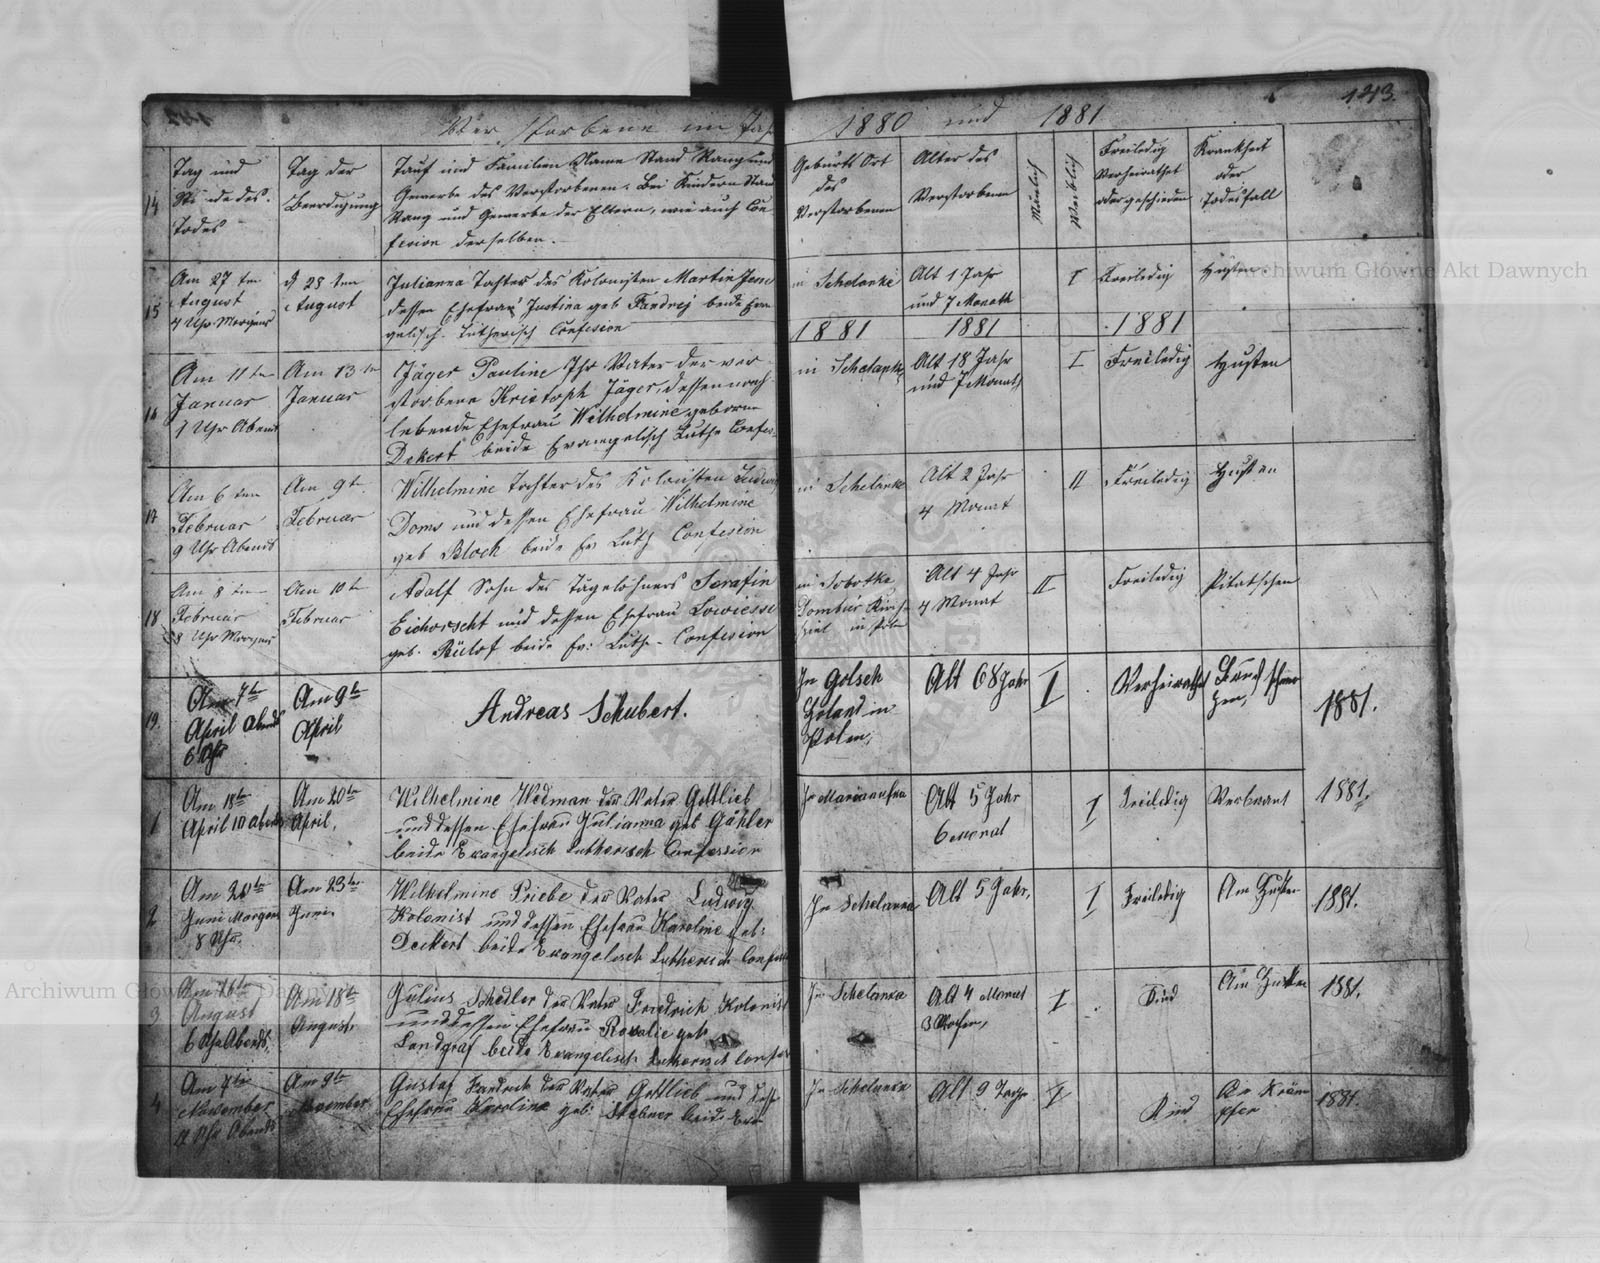 Verstorbene im Jahr 1880 und 1881
143.
14
Tag und
Stunde des
Todes
Tag der
Beerdigung
Tauf und Familien Name Stand Rang und
Gewerbe des Verstorbenen. Bei Kindern Stand
Rang und Gewerbe der Eltern, wie auch Con
fesion derselben.
Geburts Ort
des
Verstorbenen
Alter des
Verstorbenen
Mänlich
Weiblich
Freiledig
Verheirathet
oder geschieden
Krankheit
oder
Todesfall
15
Am 27 ten
August
7 Uhr Morgens
d 28 ten
August
Julianna Tochter des Kolonisten Martin
dessen Ehefrau Justina geb Fandrej beide Evan
gelisch. Lutherisch Confesion
in Schelanke
Alt 1 Jahr
und 7 Monath
I
Freiledig
Husten
1881
1881
1881
16
Am 11 ten
Januar
7 Uhr Abend
Am 13 ten
Januar
Jäger Pauline Ihr Vater der ver
storbene Kristoph Jäger, dessen noch
lebende Ehefrau Wilhelmine geborne
Dekert beide Evangelisch Luthe Confes
in Schelanke
Alt 18 Jahr
und 7 Monat
I
Freiledig
Husten
17
Am 6 ten
Februar
9 Uhr Abend
Am 9 t
Februar
Wilhelmine Tochter des Kolonisten Ludwig
Doms und dessen Ehefrau Wilhelmine
geb Block beide Ev Luth Confesion
in Schelanke
Alt 2 Jahr
4 Monat
II
Freiledig
Husten
18
Am 8 ten
Februar
8 Uhr Morgens
Am 10 t
Februar
Adolf Sohn des Tagelöhners Serafin
Eichorscht und dessen Ehefrau Lowiesse
geb. Rülof beide Ev: Luthe - Confesion
in Sobotke
in Polen
Alt 4 Jahr
7 Monat
II
Freiledig
19.
Am 7ten
April Abend
6 Uhr
Am 9te
April
Andreas Schubert.
In Golsch
Holand in
Polen,
Alt 68 Jahr
I
Verheirathet
1881.
1
Am 18te
April 10 Abends
Am 20te
April,
Wilhelmine Wedman der Vater Gottlieb
und dessen Ehefrau Julianna geb Gähler
beide Evangelisch Lutherisch Confession
Alt 5 Jahr
6 Monat
I
Freiledig
Verbrant
1881.
2
Juni Morgen
8 Uhr.
Am 23te
Juni
Wilhelmine Priebe der Vater Ludwig
Kolonist und dessen Ehefrau Karoline geb:
Deckert beide Evangelisch Lutherisch Confess
In Schelanka
Alt 5 Jahr,
I
Freiledig
Am Husten
1881.
3
Am 16te
August
6 Uhr Abends,
Am 18te
August,
Julius Schedler der Vater Friedrich Kolonist
und dessen Ehefrau Rosalie geb
Landgraf beide Evangelisch Lutherisch Confes
In Schelanka
Alt 4 Monat
3 Wochen,
I
Kind
Am Husten
1881.
4
Am 7te
November
11 Uhr Abends
Am 9te
November
Gustaf Fandrich der Vater Gottlieb und dessen
Ehefrau Karoline geb: Stebner beide Eva
In Schelanka
Alt 9 Tage
I
Kind
An Kräm
pfen
1881.
Archiwum Główne Akt Dawnych
Archiwum Główne Akt Dawnych